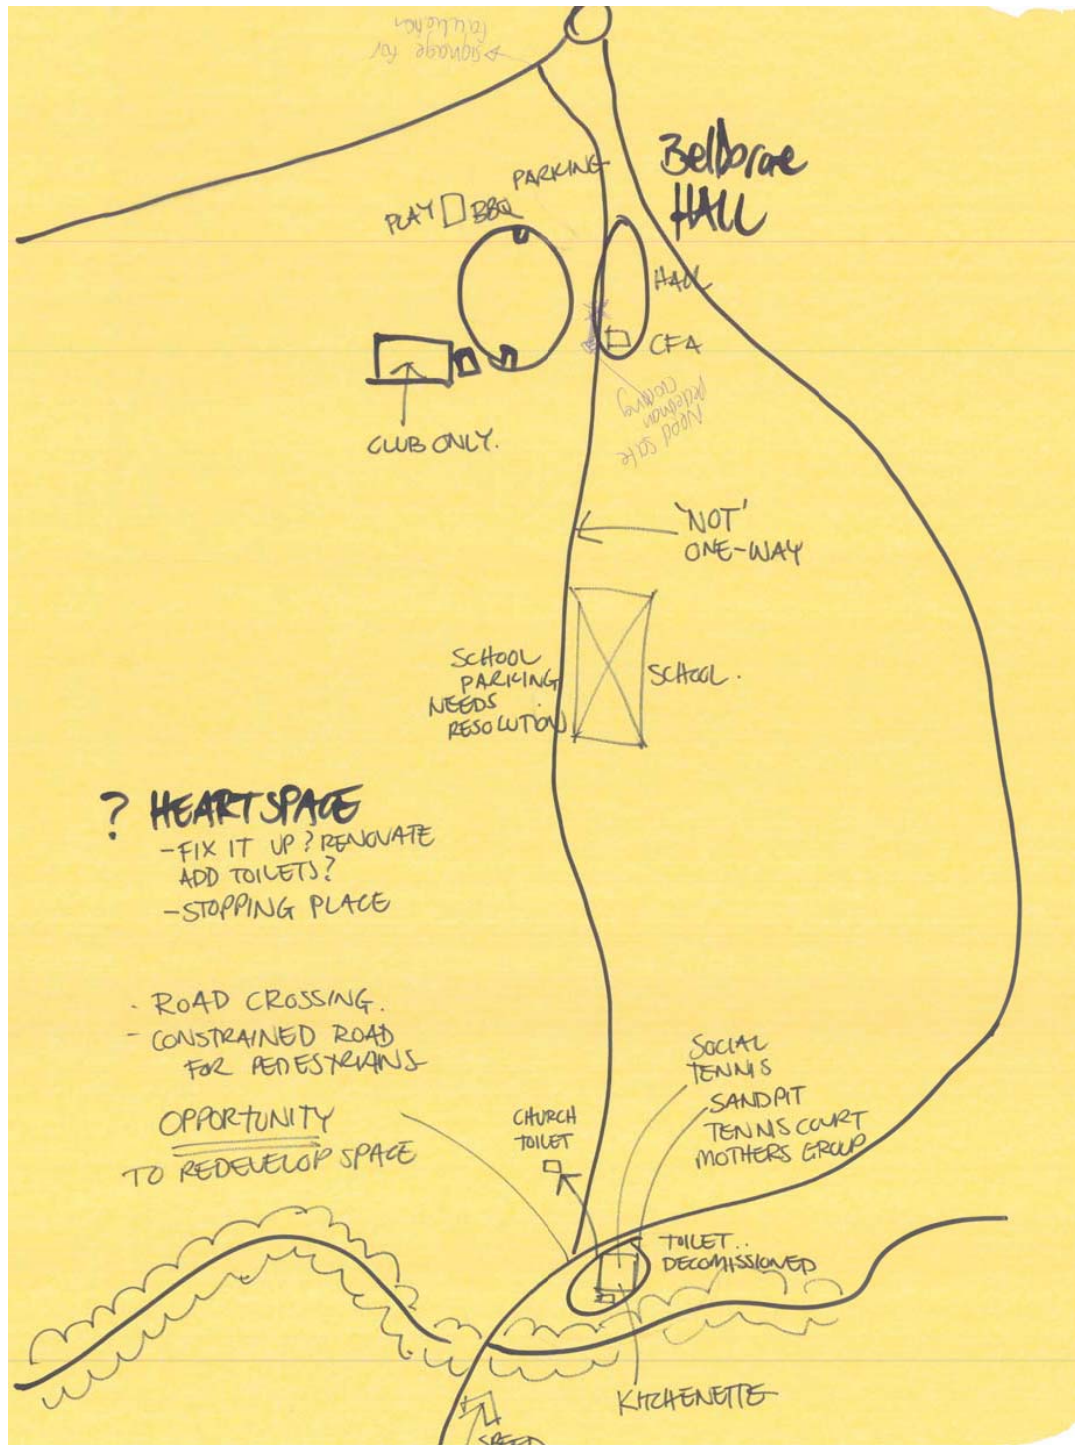 signage for
Bellbrae
HALL
PARKING
PLAY BBQ
HALL
CFA
Need safe
pedestrian
crossing
CLUB ONLY.
'NOT'
ONE-WAY
SCHOOL
PARKING
NEEDS
RESOLUTION
SCHOOL.
? HEARTSPACE
- FIX IT UP? RENOVATE
ADD TOILETS?
- STOPPING PLACE
- ROAD CROSSING.
- CONSTRAINED ROAD
FOR PEDESTRIANS
OPPORTUNITY
TO REDEVELOP SPACE
SOCIAL
TENNIS
SANDPIT
TENNIS COURT
MOTHERS GROUP
CHURCH
TOILET
TOILET..
DECOMISSIONED
KITCHENETTE
SPEED